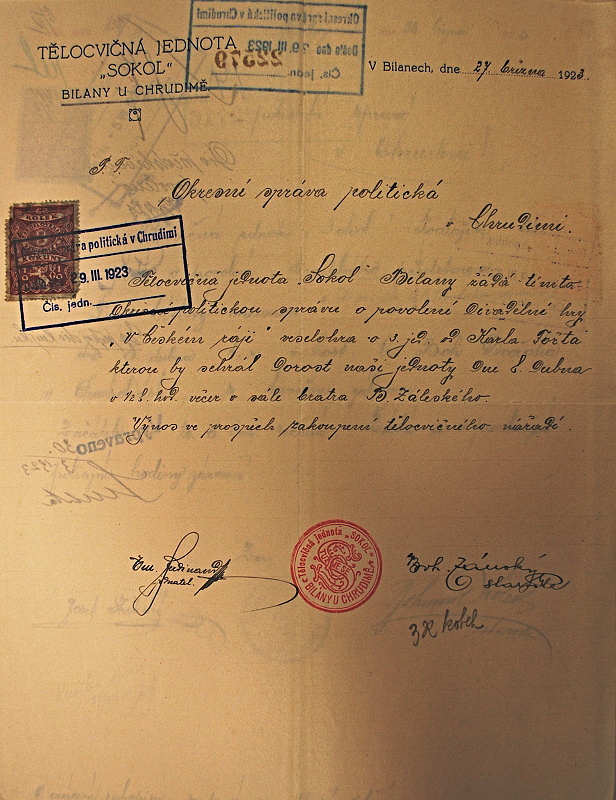 TĚLOCVIČNÁ JEDNOTA
„SOKOL”
BILANY U CHRUDIMĚ.
V Bilanech, dne 27 března 1923.
Okresní správa politická v Chrudimi
Došlo dne 29. III. 1923
Čís. jedn. 22579
P. T.
Okresní správa politická
v Chrudimi.
va politická v Chrudimi
29. III. 1923
Čís. jedn.
Tělocvičná jednota „Sokol" Bilany žádá tímto
Okresní politickou správu o povolení divadelní hry
„V Českém ráji" veselohra o 3. jed. od Karla
kterou by sehrál Dorost naší jednoty dne 8. dubna
v ½8. hod. večer v sále bratra B. Záleského.
Výnos ve prospěch zakoupení tělocvičného nářadí.
Vypraveno 30.
3/1923
Ferdinand
jednatel.
Tělocvičná jednota „SOKOL”
BILANY U CHRUDIMĚ
Boh. Zánský
starosta
3 K kolek